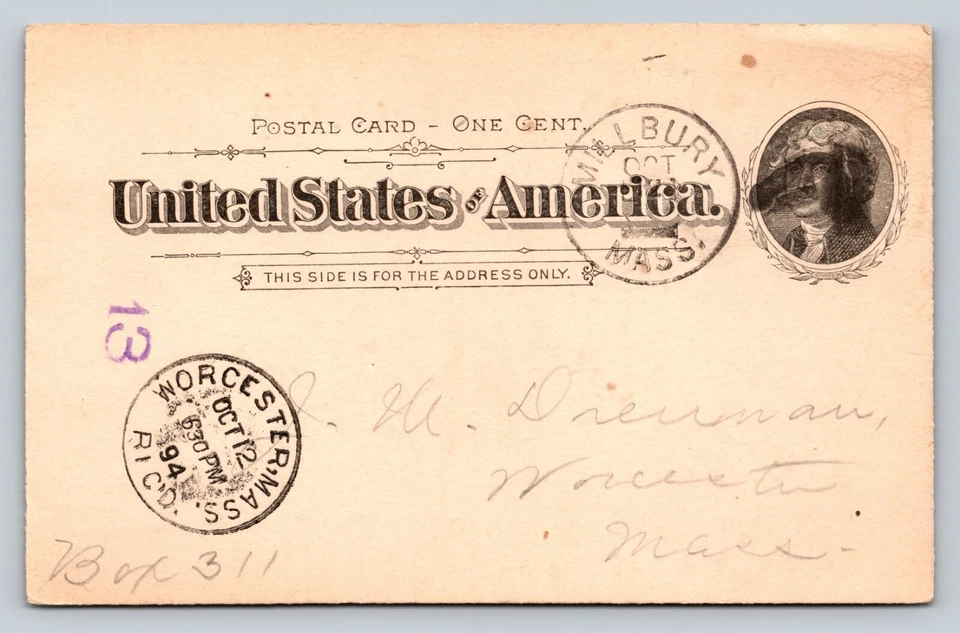 POSTAL CARD - ONE CENT.
United States OF America.
THIS SIDE IS FOR THE ADDRESS ONLY.
MILLBURY
OCT
MASS.
13
WORCESTER, MASS.
OCT 12
630 PM
94
REC'D.
J. M. Drennan,
Worcester
Mass.
Box 311